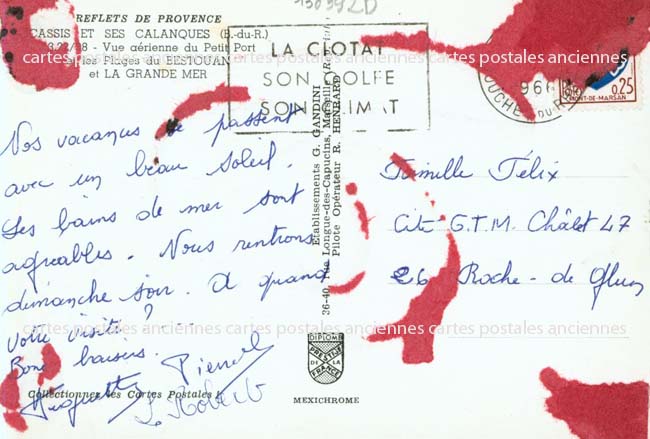 130392D
REFLETS DE PROVENCE
CASSIS ET SES CALANQUES (B.-du-R.)
Vue aérienne du Petit Port
les Plages du BESTOUAN
et LA GRANDE MER
LA CIOTAT
SON GOLFE
SON CLIMAT
BOUCHES DU R
966
0,25
MONT-DE-MARSAN
Nos vacances se passent
avec un beau soleil.
Les bains de mer sont
agréables. Nous rentrons
dimanche soir. A quand
votre visite ? ...
Bons baisers.
Huguette Pierrot
Robert
Etablissements G. GANDINI
36-40, Rue Longue-des-Capucins, Marseille
Pilote Opérateur R. HENRARD
Famille Félix
Cité G.T.M. Châlet 47
26 Roche-de-Glun
cartes postales anciennes cartes postales anciennes cartes postales anciennes
DIPLOME
PRESTIGE
DE LA
FRANCE
Collectionnez les Cartes Postales
MEXICHROME